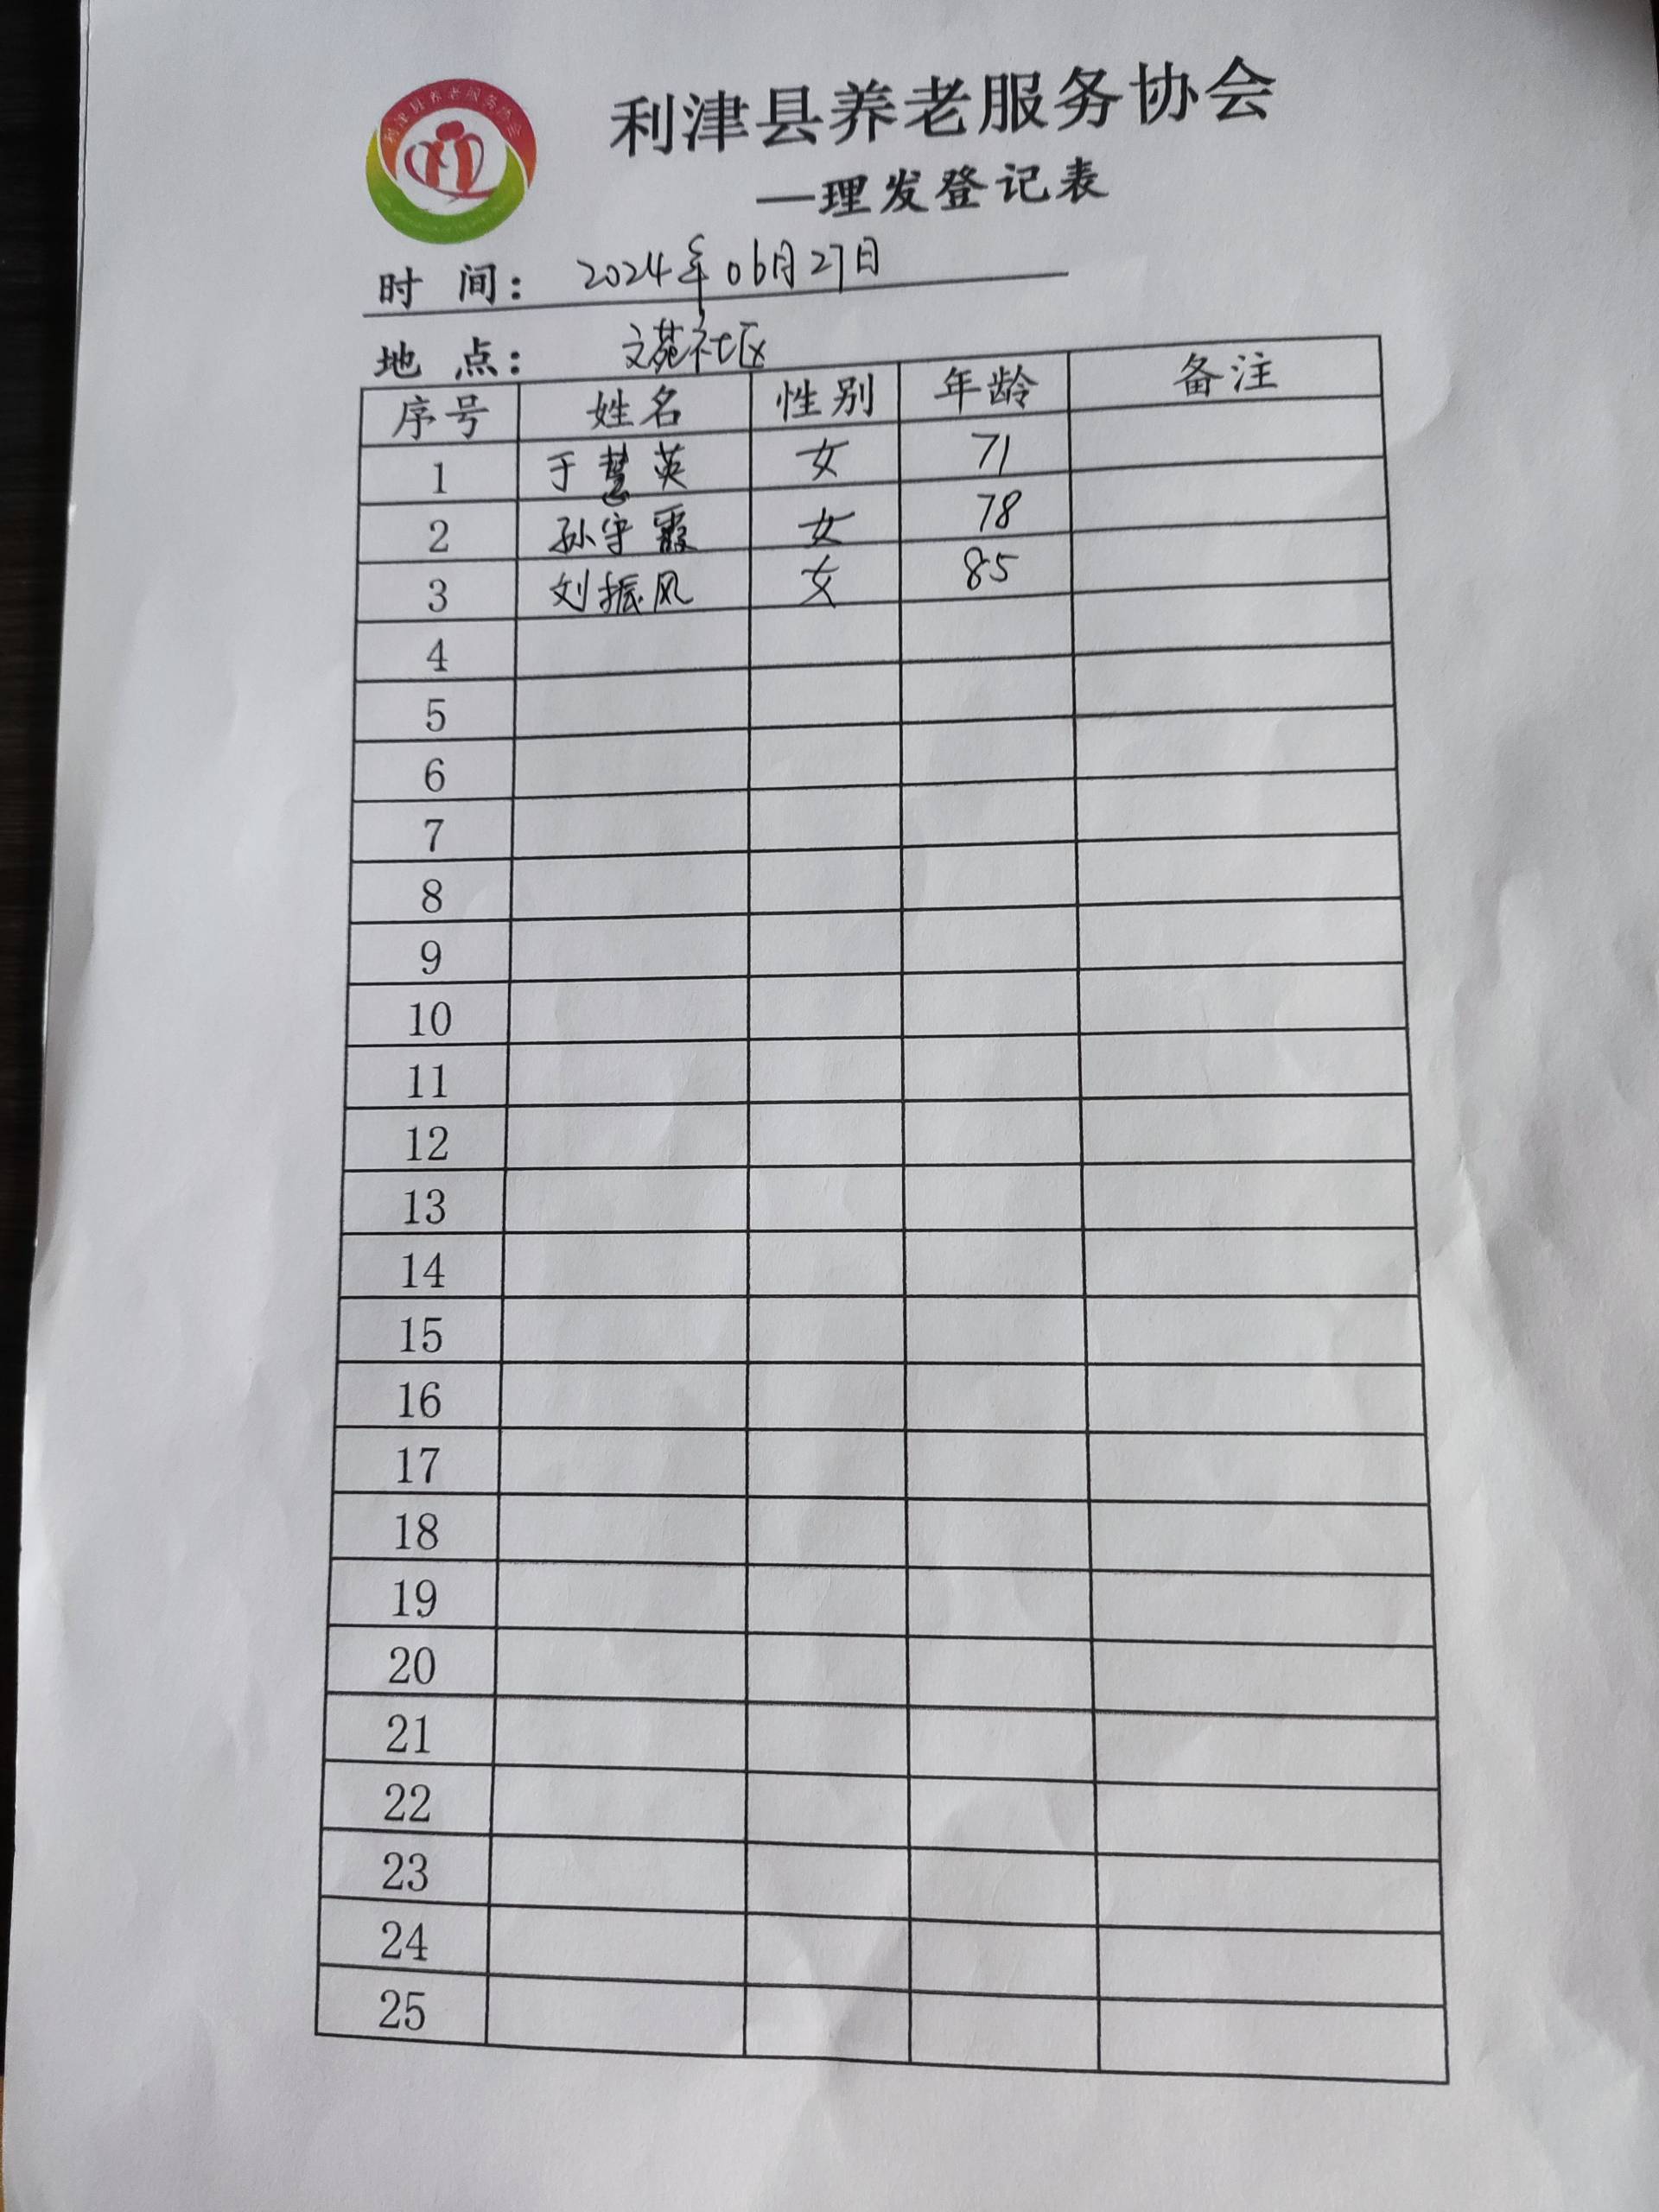 利津县养老服务协会
利津县养老服务协会
—理发登记表
时 间： 2024年06月27日
地 点： 文苑社区
序号 姓名 性别 年龄 备注
1 于慧英 女 71
2 孙守霞 女 78
3 刘振风 女 85
4
5
6
7
8
9
10
11
12
13
14
15
16
17
18
19
20
21
22
23
24
25